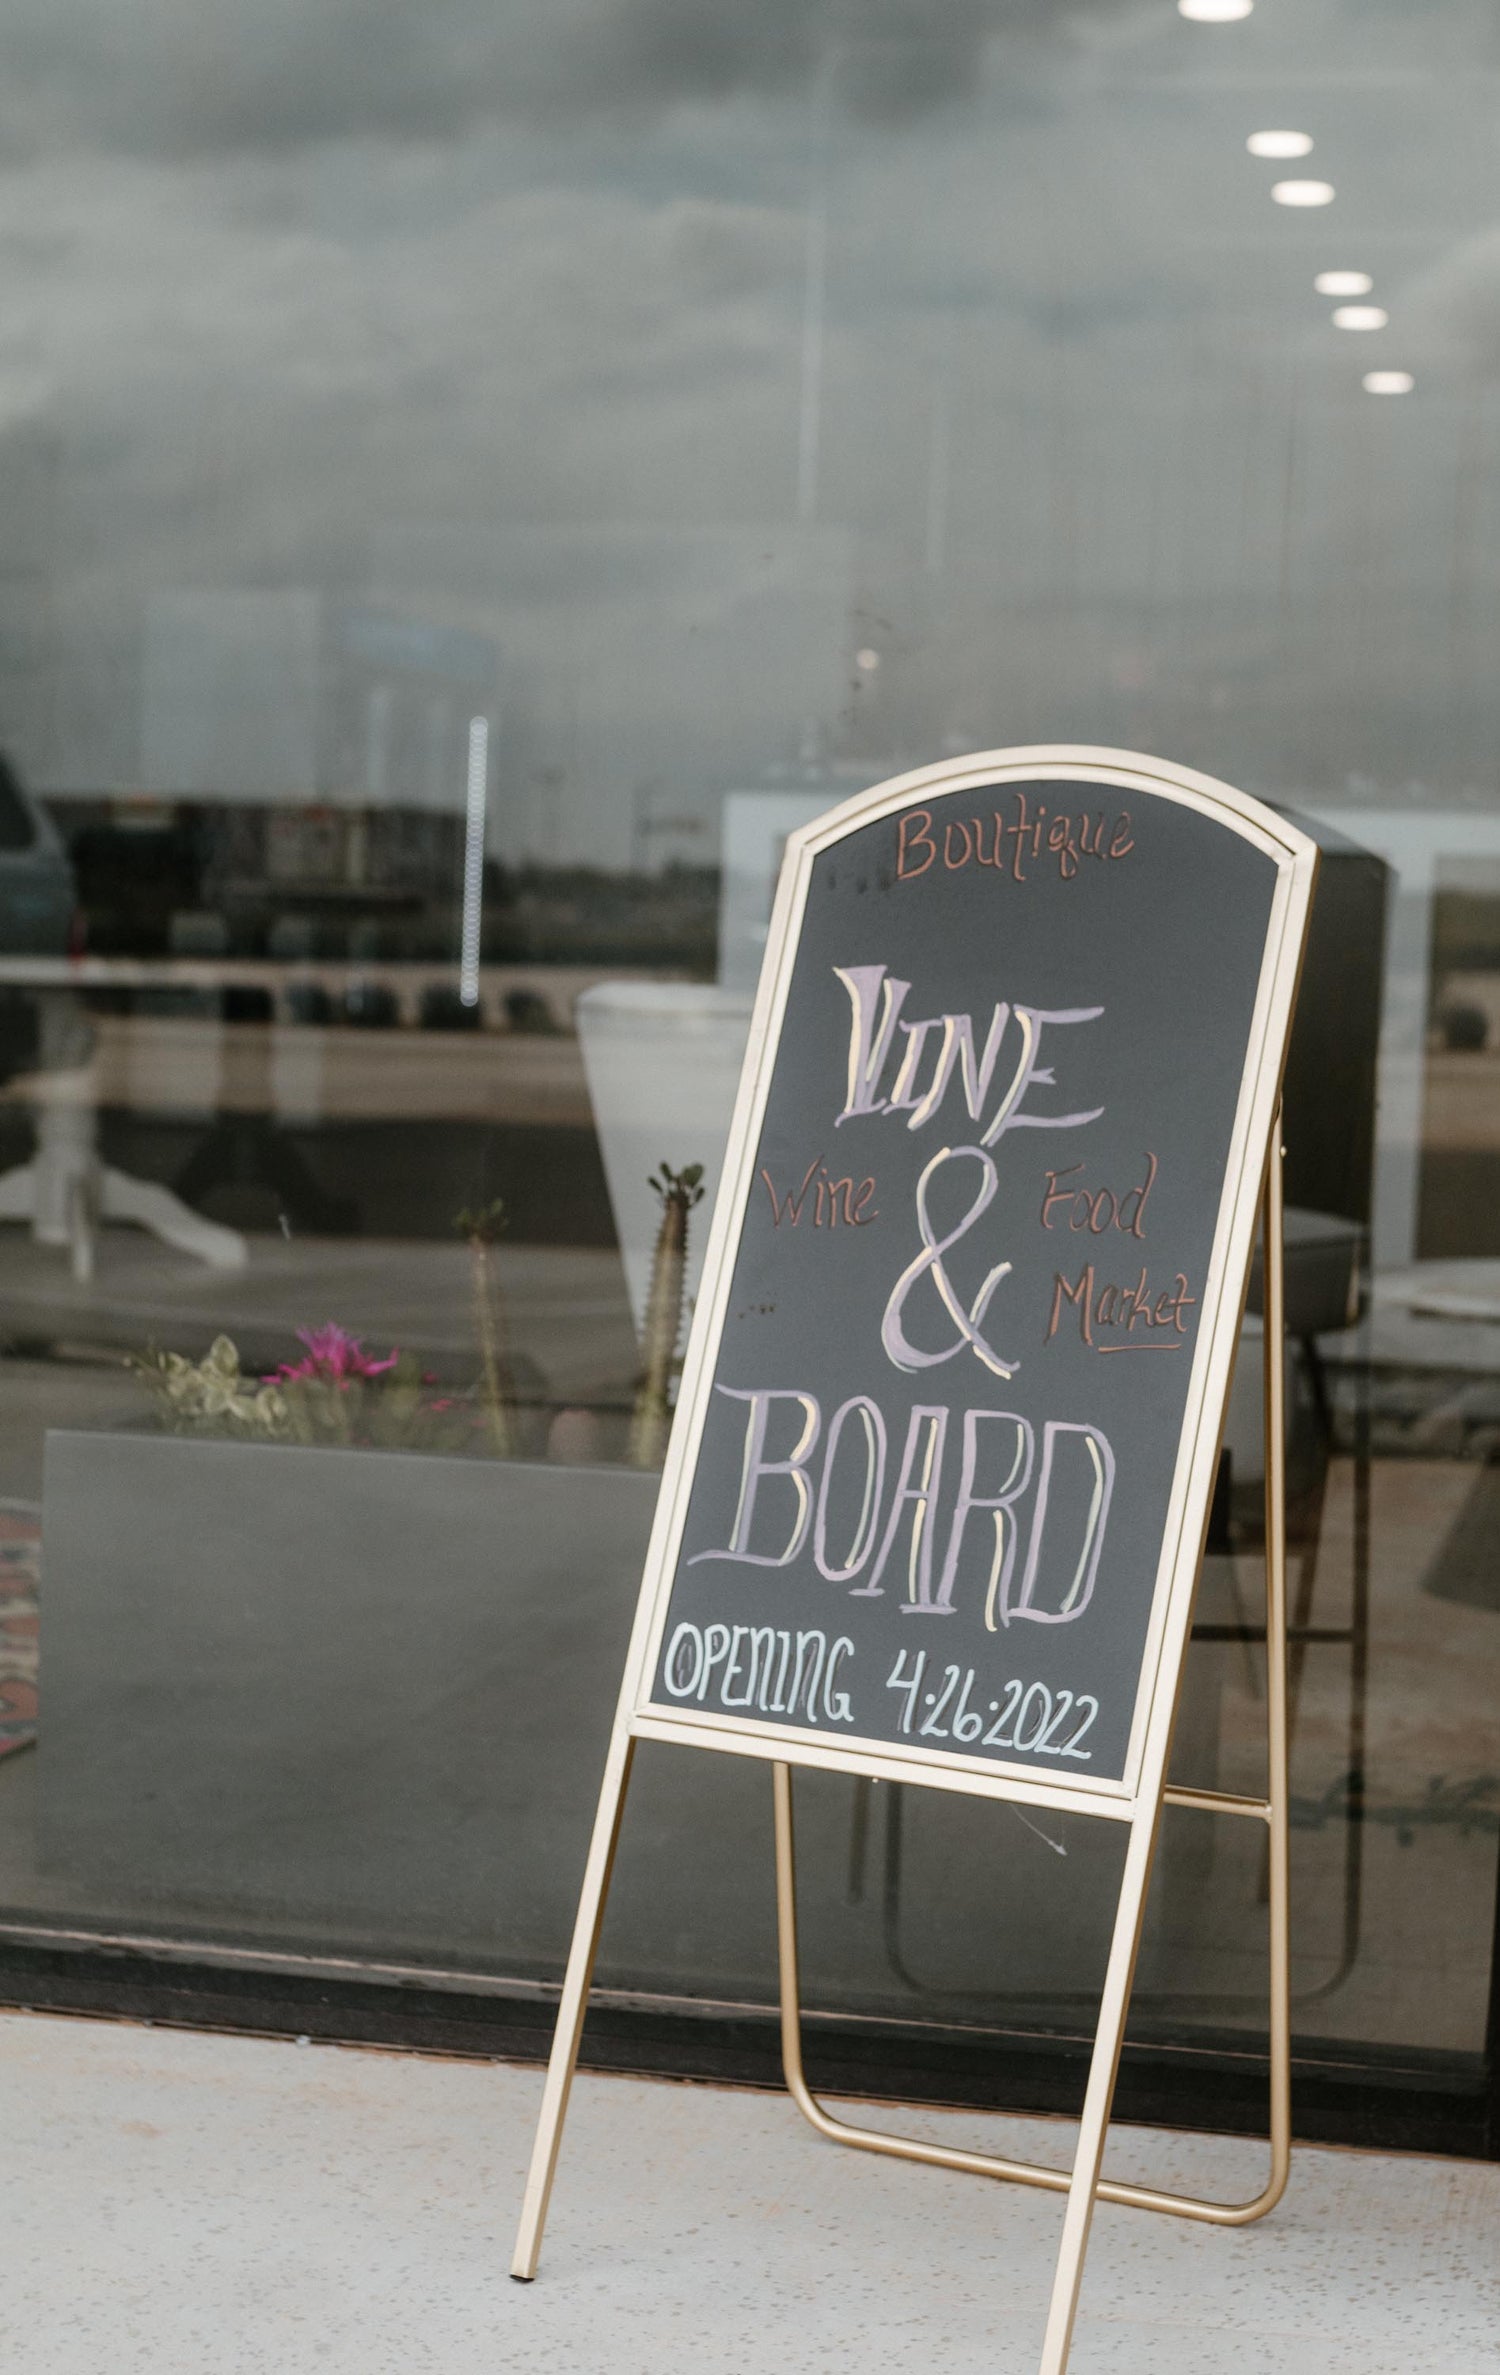 Boutique
VINE
Wine & Food
Market
BOARD
OPENING 4·26·2022